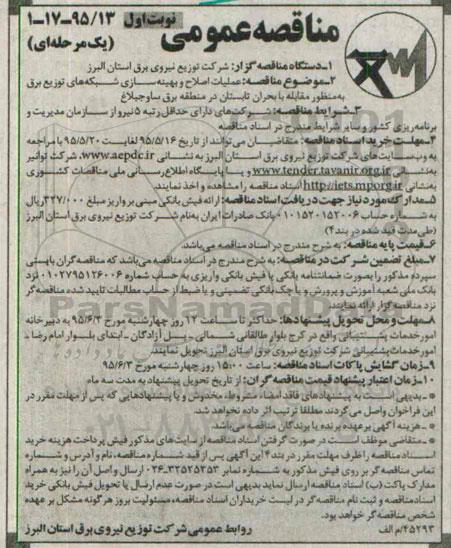 مناقصه عمومی
نوبت اول
۱–۱۷–۹۵/۱۳
(یک مرحله‌ای)
۱ـ دستگاه مناقصه گزار: شرکت توزیع نیروی برق استان البرز
۲ـ موضوع مناقصه: عملیات اصلاح و بهینه‌سازی شبکه‌های توزیع برق
به منظور مقابله با بحران تابستان در منطقه برق ساوجبلاغ
۳ـ شرایط مناقصه: شرکت‌های دارای حداقل رتبه ۵ نیرو از سازمان مدیریت و
برنامه‌ریزی کشور و سایر شرایط مندرج در اسناد مناقصه
۴ـ مهلت خرید اسناد مناقصه: متقاضیان می‌توانند از تاریخ ۹۵/۵/۱۶ لغایت ۹۵/۵/۲۰ با مراجعه
به وب‌سایت‌های شرکت توزیع نیروی برق استان البرز به نشانی www.aepdc.ir، شرکت توانیر
به نشانی www.tender.tavanir.org.ir و یا پایگاه اطلاع‌رسانی ملی مناقصات کشوری
به نشانی http://iets.mporg.ir اسناد مناقصه را مشاهده و اخذ نمایند.
۵ـ مدارک مورد نیاز جهت دریافت اسناد مناقصه: ارائه فیش بانکی مبنی بر واریز مبلغ ۳۲۷/۰۰۰ ریال
به شماره حساب ۰۱۰۱۵۲۰۱۵۲۰۰۶ بانک صادرات ایران به نام شرکت توزیع نیروی برق استان البرز
(طی مدت قید شده در بند ۴)
۶ـ قیمت پایه مناقصه: به شرح مندرج در اسناد مناقصه می‌باشد.
۷ـ مبلغ تضمین شرکت در مناقصه: به شرح مندرج در اسناد مناقصه می‌باشد که مناقصه‌گران بایستی
سپرده مذکور را بصورت ضمانتنامه بانکی یا فیش بانکی واریزی به حساب شماره ۰۱۰۲۷۹۵۱۲۶۰۰۶ نزد
بانک ملی شعبه آموزش و پرورش و یا چک بانکی تضمینی و یا ضبط از حساب مطالبات تایید شده مناقصه‌گر
نزد مناقصه گزار ارائه نمایند.
۸ـ مهلت و محل تحویل پیشنهادها: حداکثر تا ساعت ۱۲ روز چهارشنبه مورخ ۹۵/۶/۳ به دبیرخانه
امور خدمات پشتیبانی واقع در کرج بلوار طالقانی شمالی ـ پل آزادگان ـ ابتدای بلوار امام رضا ـ
امور خدمات پشتیبانی شرکت توزیع نیروی برق استان البرز تحویل نمایند.
۹ـ زمان گشایش پاکات اسناد مناقصه: ساعت ۱۵:۰۰ روز چهارشنبه مورخ ۹۵/۶/۳
۱۰ـ زمان اعتبار پیشنهاد قیمت مناقصه گران: از تاریخ تحویل پیشنهاد به مدت سه ماه
ـ بدیهی است به پیشنهادهای فاقد امضاء، مشروط، مخدوش و یا پیشنهادهایی که پس از مهلت مقرر در
این فراخوان واصل می‌گردند، مطلقا ترتیب اثر داده نخواهد شد.
ـ هزینه آگهی بر عهده برنده یا برندگان مناقصه می‌باشد.
ـ متقاضی موظف است در صورت گرفتن اسناد مناقصه از سایت‌های مذکور فیش پرداخت هزینه خرید
اسناد مناقصه را ظرف مهلت مقرر در بند ۴ این آگهی پس از قید شماره مناقصه، نام و آدرس و شماره
تماس مناقصه‌گر بر روی فیش مذکور به شماره نمابر ۳۲۵۲۵۳۵۳-۰۲۶ ارسال و اصل آن را نیز به همراه
مدارک پاکت (ب) اسناد مناقصه ارسال نماید بدیهی است در صورت عدم ارسال یا تحویل فیش بانکی خرید
اسناد مناقصه و ثبت نام مناقصه‌گر در لیست خریداران اسناد مناقصه، مسئولیت بروز هرگونه مشکل بر عهده
شخص مناقصه‌گر خواهد بود.
۴۵۲۹۳/م الف
روابط عمومی شرکت توزیع نیروی برق استان البرز
ParsNamadData